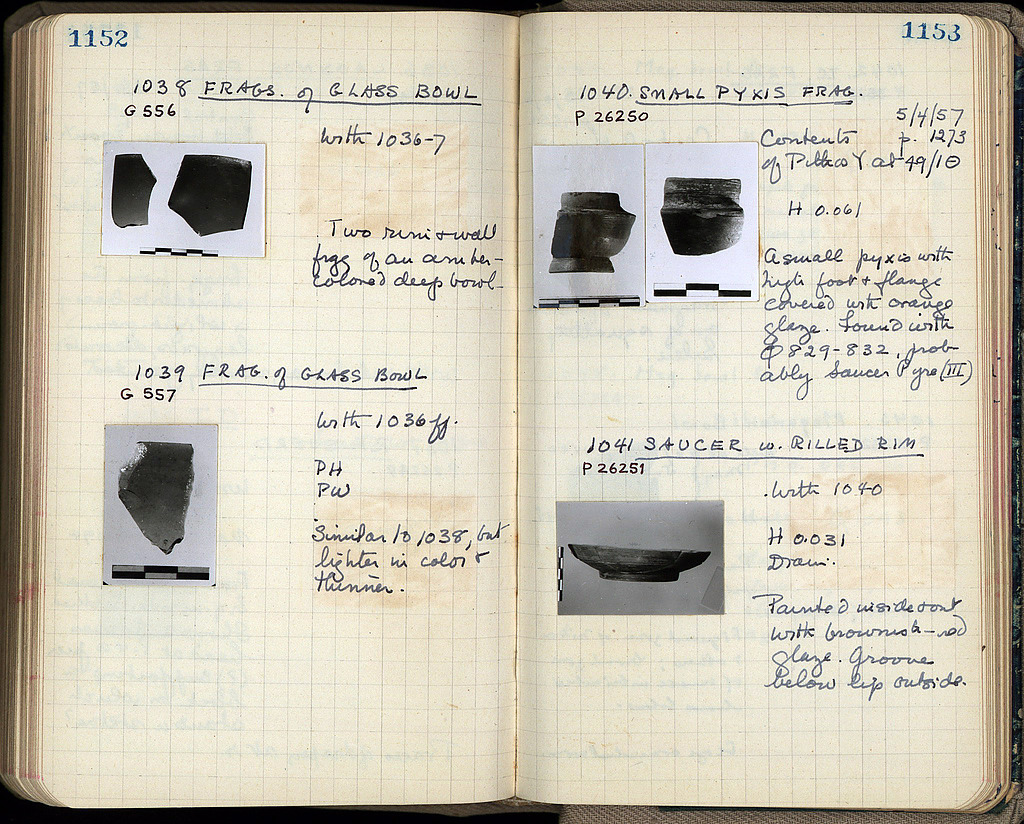 1152
1038 FRAGS. of GLASS BOWL
G 556
With 1036-7
Two rim & wall
frgg of an amber-
colored deep bowl-
1039 FRAG. of GLASS BOWL
G 557
With 1036 ff.
PH
PW
Similar to 1038, but
lighter in color &
thinner.
1153
1040. SMALL PYXIS FRAG.
P 26250
5/4/57
Contents p. 1273
of Pithos Y at 49/ΙΘ
H 0.061
A small pyxis with
high foot & flange
covered with orange
glaze. Found with
829-832, prob-
ably Saucer Pyre (III)
1041 SAUCER w. RILLED RIM
P 26251
With 1040
H 0.031
Diam.
Painted inside & out
with brownish-red
glaze. Groove
below lip outside.